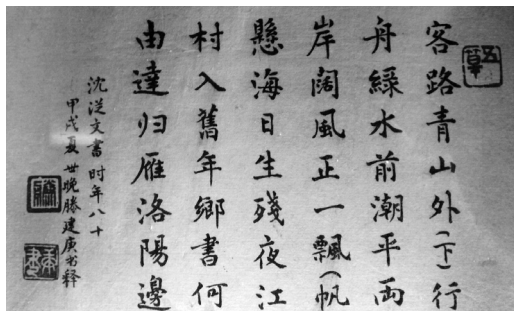 客路青山外(下)行
舟緑水前潮平両
岸闊風正一飄(帆
懸海日生殘夜江
村入舊年鄉書何
由達归雁洛陽邊
沈從文書时年八十
甲戌夏世晚滕建庚书释